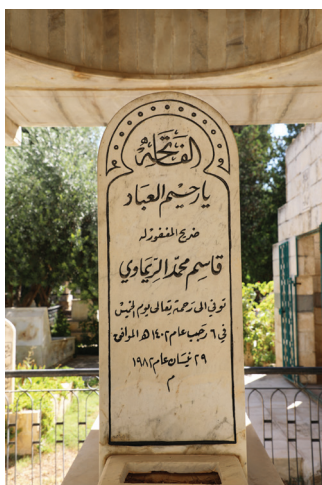 الفاتحة
يا رحيم العباد
ضريح المغفور له
قاسم محمد الريماوي
توفي الى رحمة تعالى يوم الخميس
في ٦ رجب عام ١٤٠٢ هـ الموافق
٢٩ نيسان عام ١٩٨٢
م